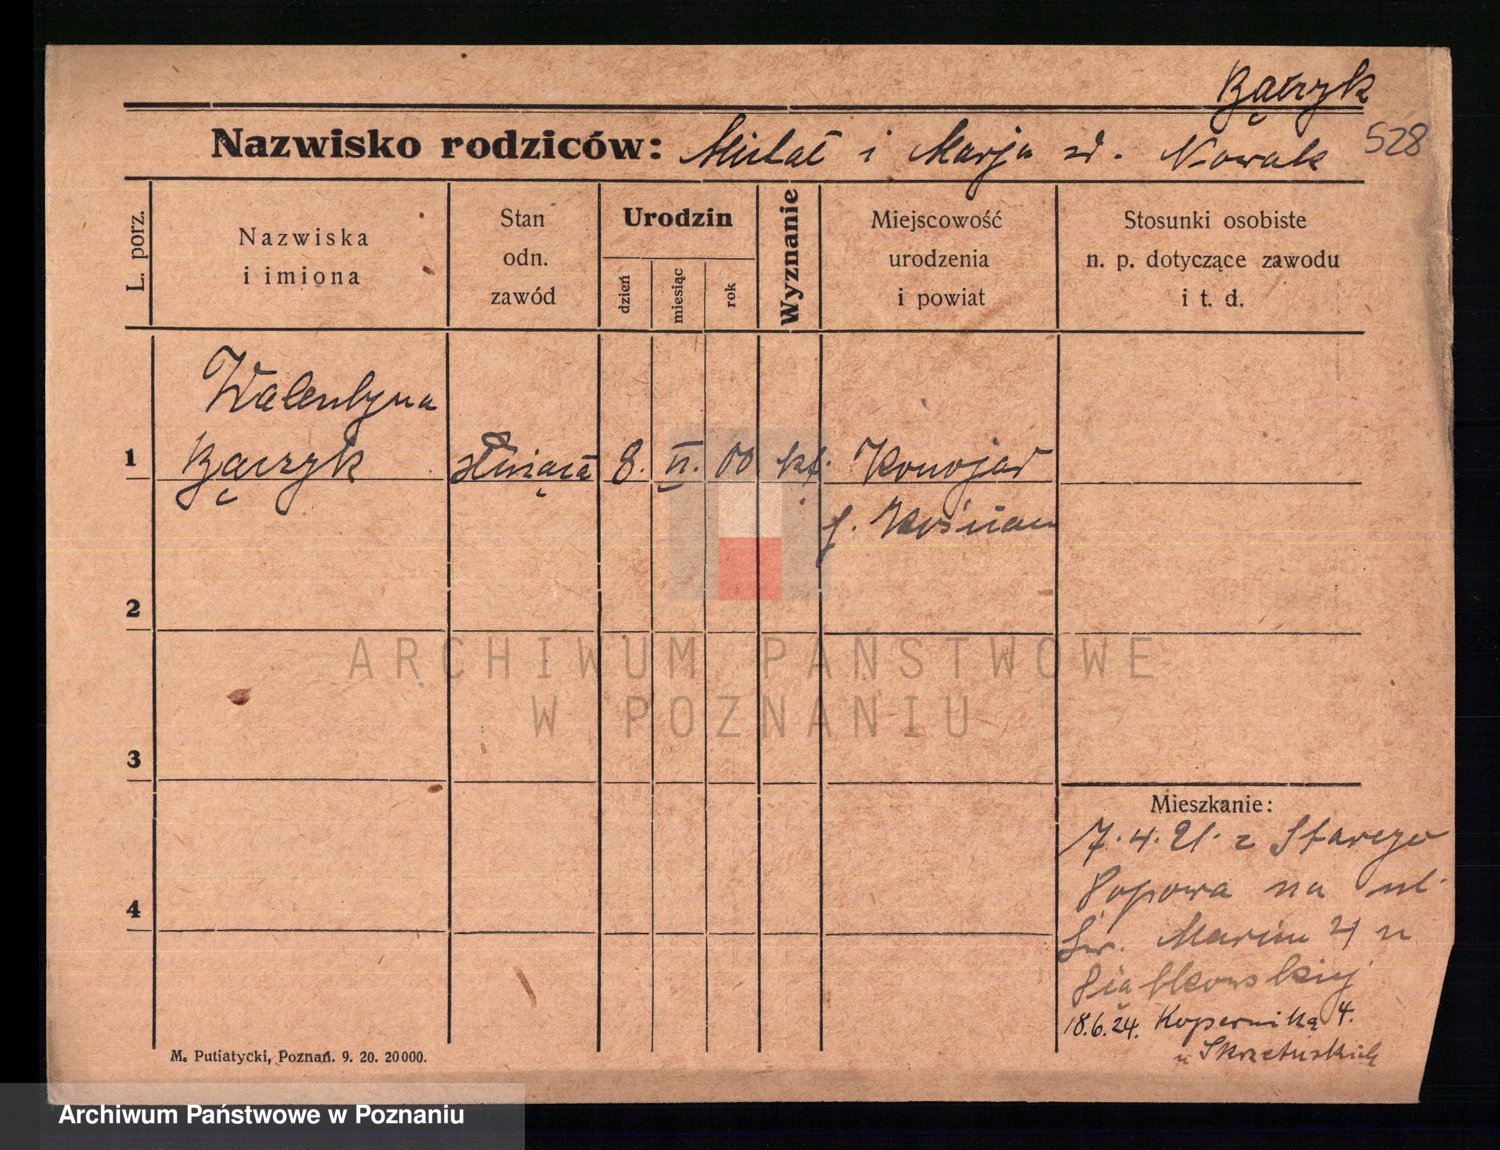 Bączyk
Nazwisko rodziców: Michał i Marja zd. Nowak 528
L. porz.
Nazwiska
i imiona
Stan
odn.
zawód
Urodzin
dzień
miesiąc
rok
Wyznanie
Miejscowość
urodzenia
i powiat
Stosunki osobiste
n. p. dotyczące zawodu
i t. d.
Walentyna
1 Bączyk służąca 8. II. 00 kat. Konojad
p. Kościan
2
3
4
Mieszkanie:
7.4.21. z Starego
Popowa na ul.
Św. Marcin 21 u
Piątkowskiej
18.6.24. Kopernika 4.
u Skrzetuskich
M. Putiatycki, Poznań. 9. 20. 20000.
ARCHIWUM PAŃSTWOWE
W POZNANIU
Archiwum Państwowe w Poznaniu